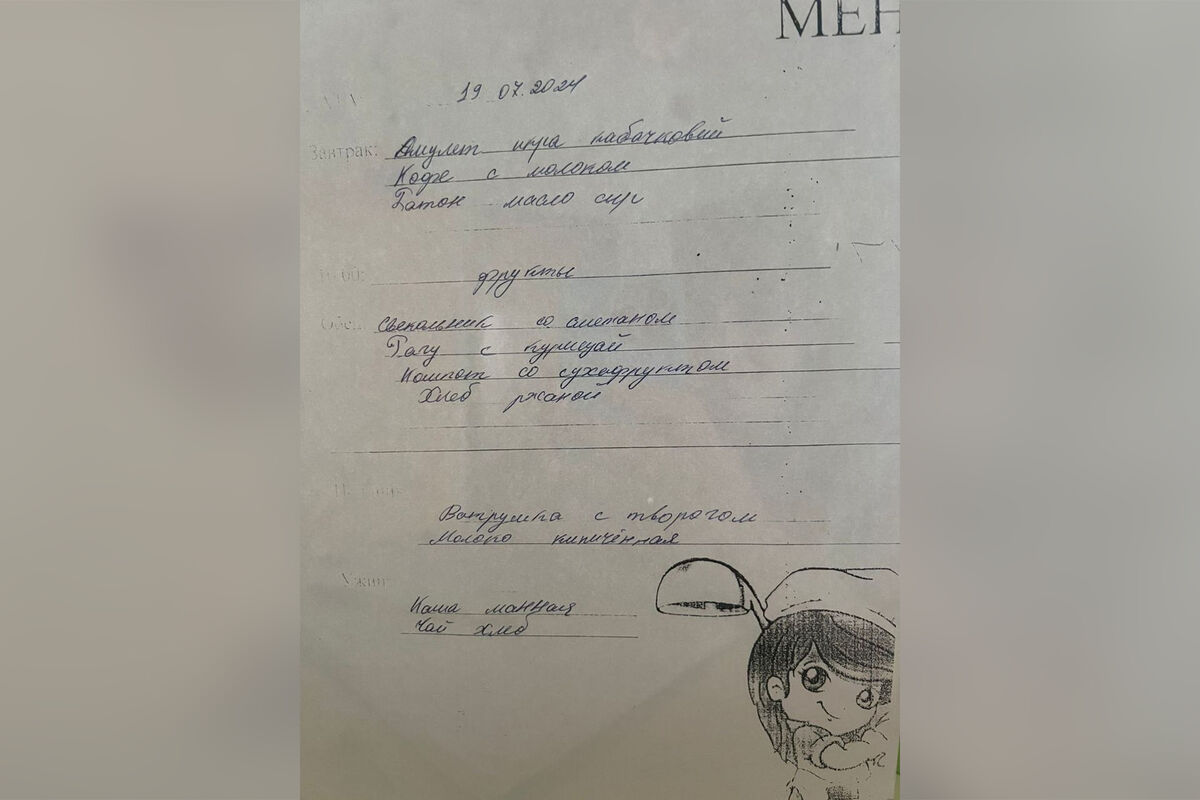 МЕН
19 07.2024
Завтрак: Омулет икра кабачковий
Кофе с молоком
Батон масло сыр
фрукты
Обед Свекольник со сметаном
Рагу с курицай
Компот со сухофруктом
Хлеб ржаной
Ватрушка с творогом
Молоко кипичённая
Ужин
Каша манная
Чай хлеб